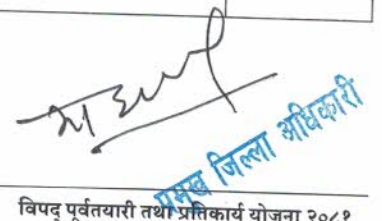 प्रमुख जिल्ला अधिकारी
विपद् पूर्वतयारी तथा प्रतिकार्य योजना २०८१